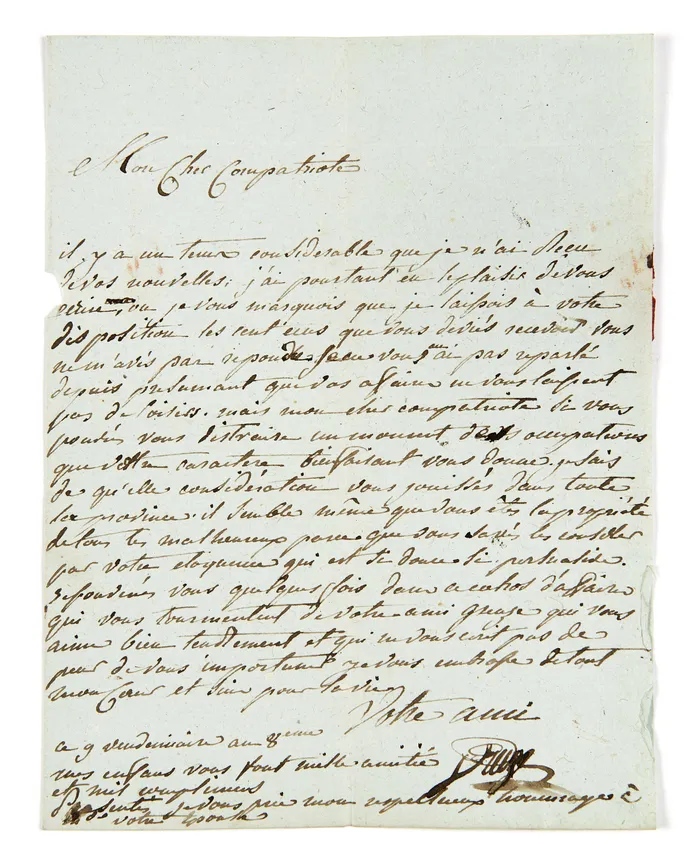 Mon Cher Compatriote
il y a un tems considerable que je n'ai Recu
de vos nouvelles; j'ai pourtant eu le plaisir de vous
ecrire, ou je vous marquois que je laissois à votre
disposition les cent ecus que vous deviés recevoir vous
ne m'avés pas repondu je ne vous en ai pas reparlé
depuis presumant que vos affaire ne vous laissent
pas de loisirs. mais mon cher compatriote si vous
pouvés vous distraire un moment des occupations
que votre caractere bienfaisant vous donne. je sais
de qu'elle considération vous jouissés dans toute
la province. il semble même que vous êtes la propriété
de tous les malheureux parce que vous savés les consoler
par votre eloquence qui est si douce si persuasive.
souvenés vous quelques fois dans ce cahos d'affaire
qui vous tourmentent de votre ami greuze qui vous
aime bien tendrement et qui ne vous ecrit pas de
peur de vous importuner je vous embrasse de tout
mon Cœur et suis pour la vie
Votre ami
ce 9 vendemiaire an 8eme
Greuze
mes enfans vous font mille amitié
et mil complimens
presentés je vous prie mon respectueux hommage à
votre epouse